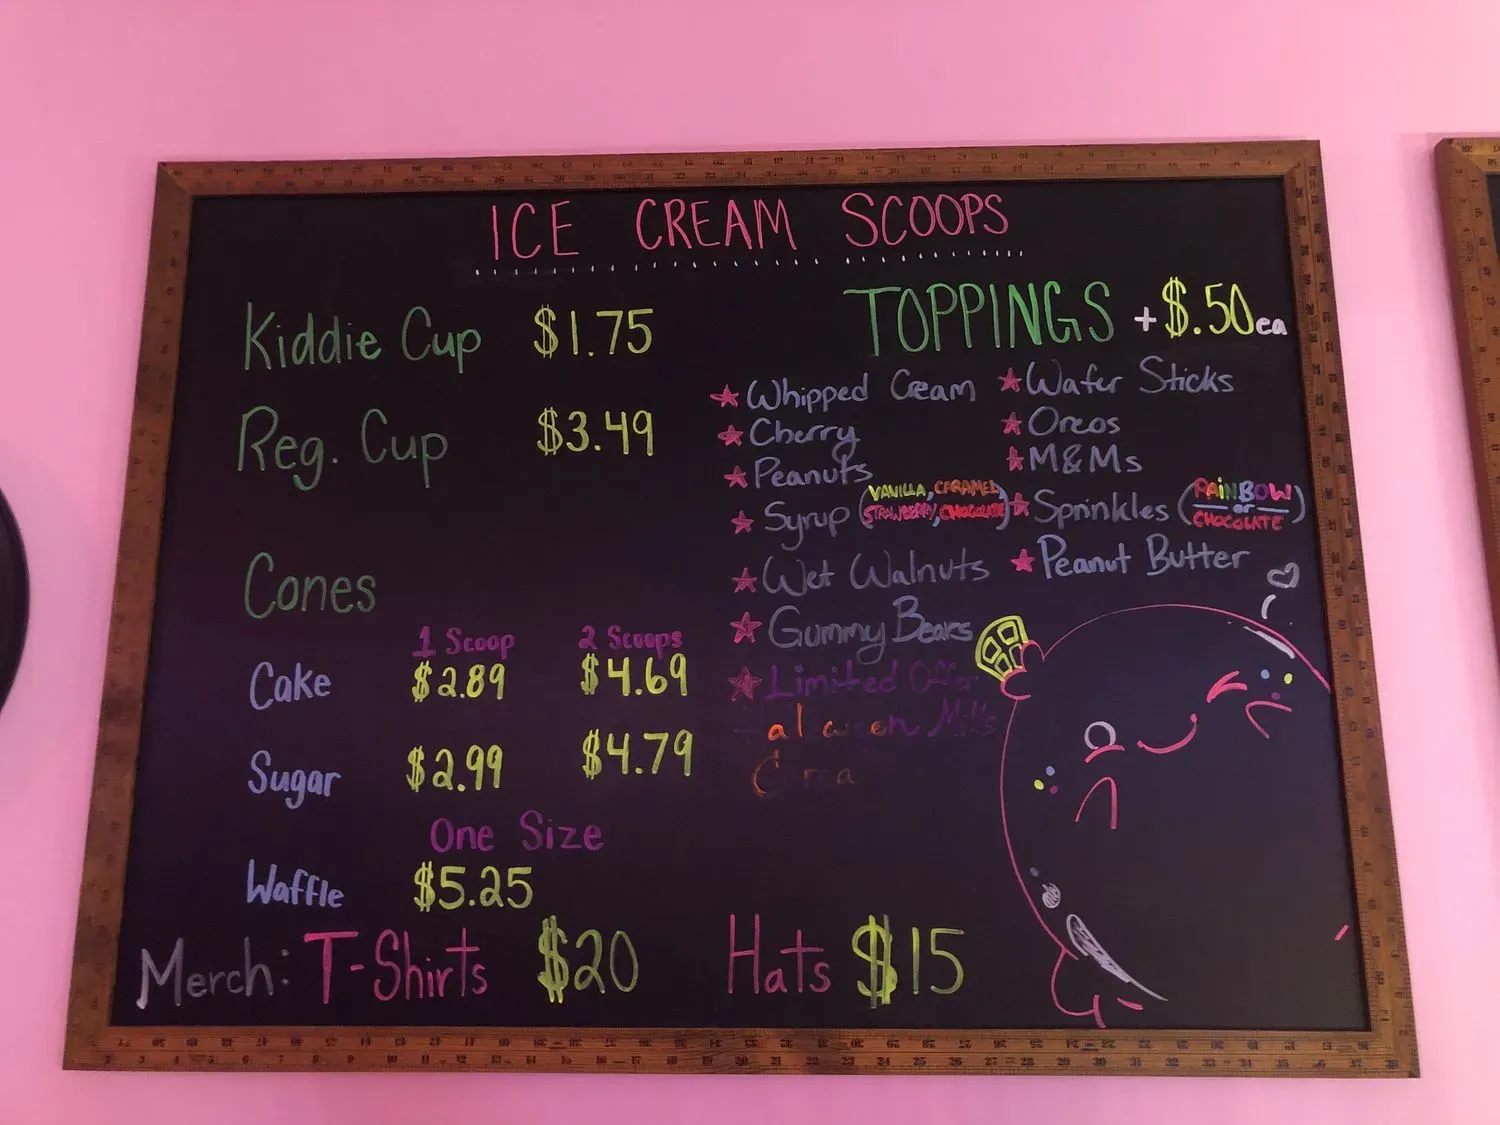 ICE CREAM SCOOPS
Kiddie Cup $1.75
Reg. Cup $3.49
Cones
1 Scoop 2 Scoops
Cake $2.89 $4.69
Sugar $2.99 $4.79
One Size
Waffle $5.25
TOPPINGS +$.50 ea
Whipped Cream
Cherry
Peanuts
Syrup (VANILLA, CARAMEL,
STRAWBERRY, CHOCOLATE)
Wet Walnuts
Gummy Bears
Limited Offer
Wafer Sticks
Oreos
M&Ms
Sprinkles (RAINBOW
or
CHOCOLATE)
Peanut Butter
Merch: T-Shirts $20 Hats $15